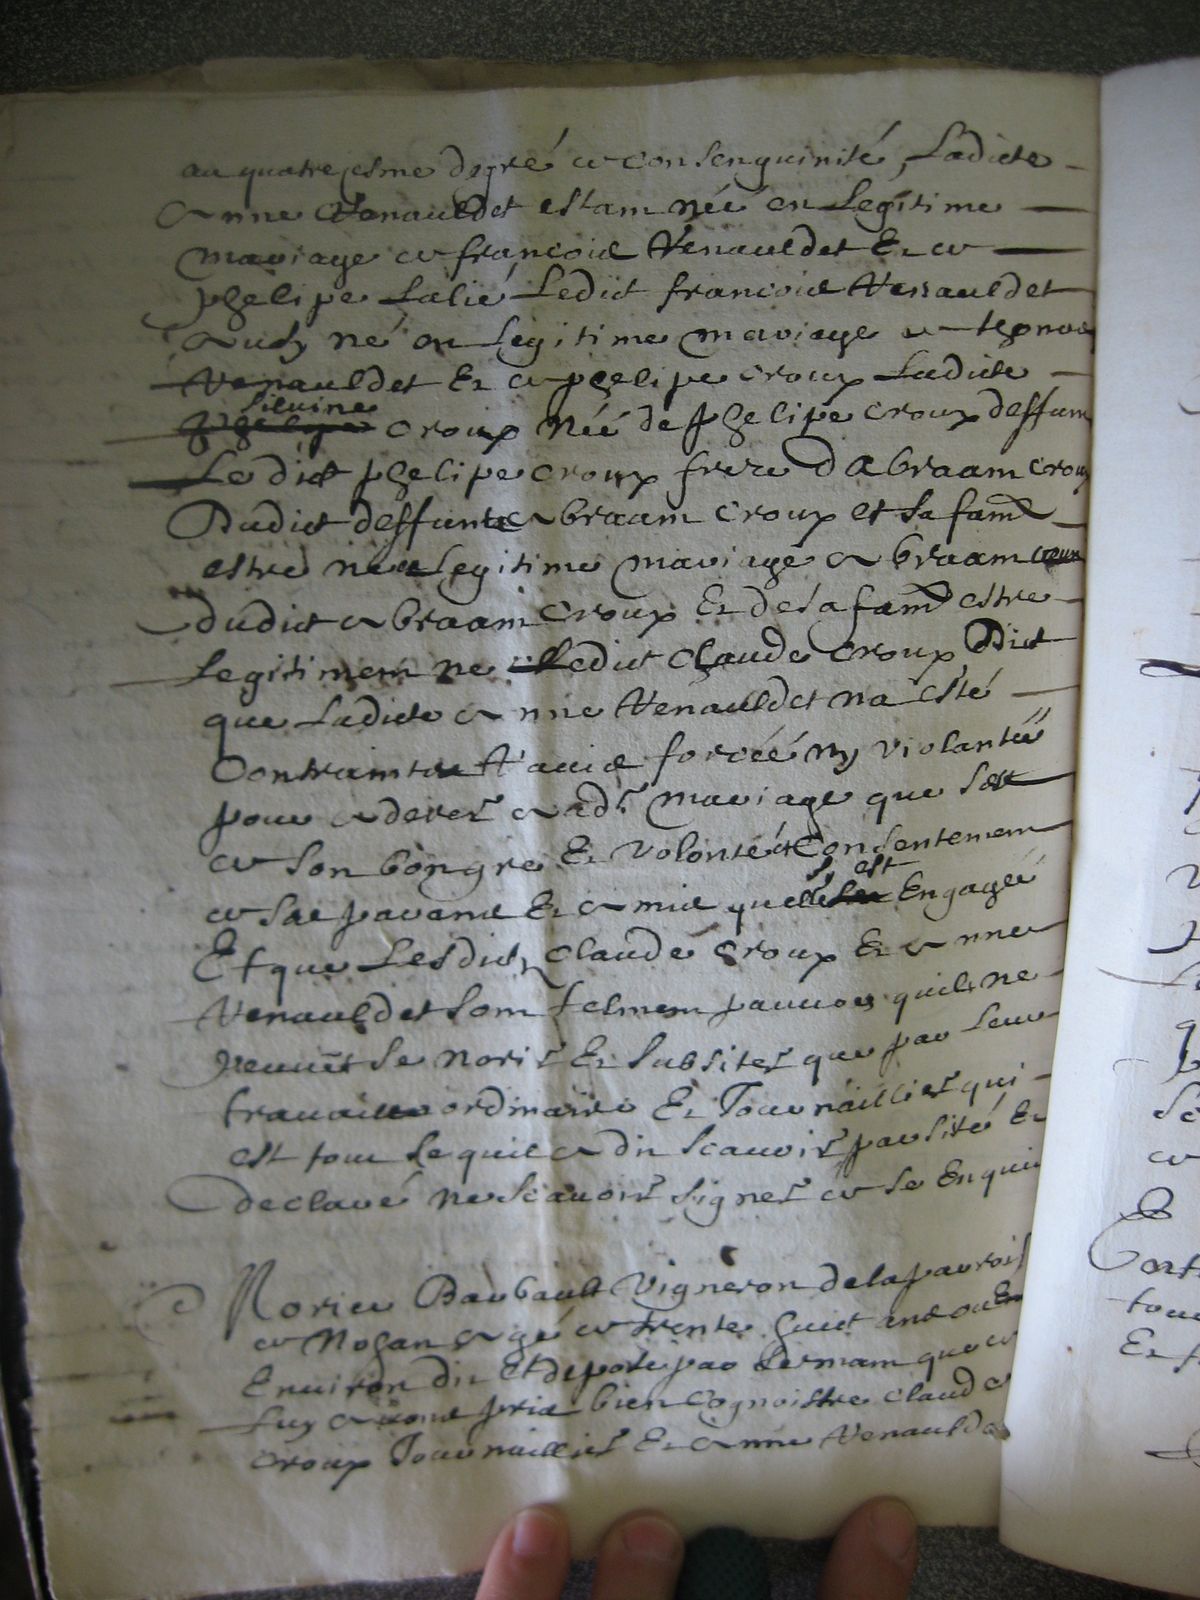 au quatriesme degré de consenguinité, Ladicte
Anne Renauldet estam née en Legitime
mariage de francois Renauldet Et de
phelipe Lalié Ledict francois Renauldet
Aussy né en Legitime mariage de
Renauldet Et de phelipe croux Ladicte
silvine
phelipe croux Néé de phelipe croux deffunt
Ledict phelipe croux frere dAbraam croux
Dudict deffunct Abraam croux et sa fame
estre né Legitime mariage Abraam
dudict Abraam croux Et de sa fame estre
Legitimem ne Ledict Claude croux Dict
que Ladicte Anne Renauldet na esté
Contraincte Ravie forcéé ny violantéé
pour adherer audt mariage que cest
de son bon gré Et volonté et Consentement
s est
de ses parans Et amis quelle Engagéé
Et que Lesdictz Claude croux Et Anne
Renauldet sont telmem pauvres quils ne
peuvet se norir Et subsiter que par Leur
travaille ordinaire Et Journaillier qui
est tout Le quil a dit scavoir par sité Et
declaré ne scavoir signer de se Enquis
Barbault Vigneron de la parrois
de Nohan agé de trente huict ans ou En
Environ dit Et depose par sermam que de
luy a tous pris bien cognoistre Claude
croux Journaillier Et Anne Renaulde